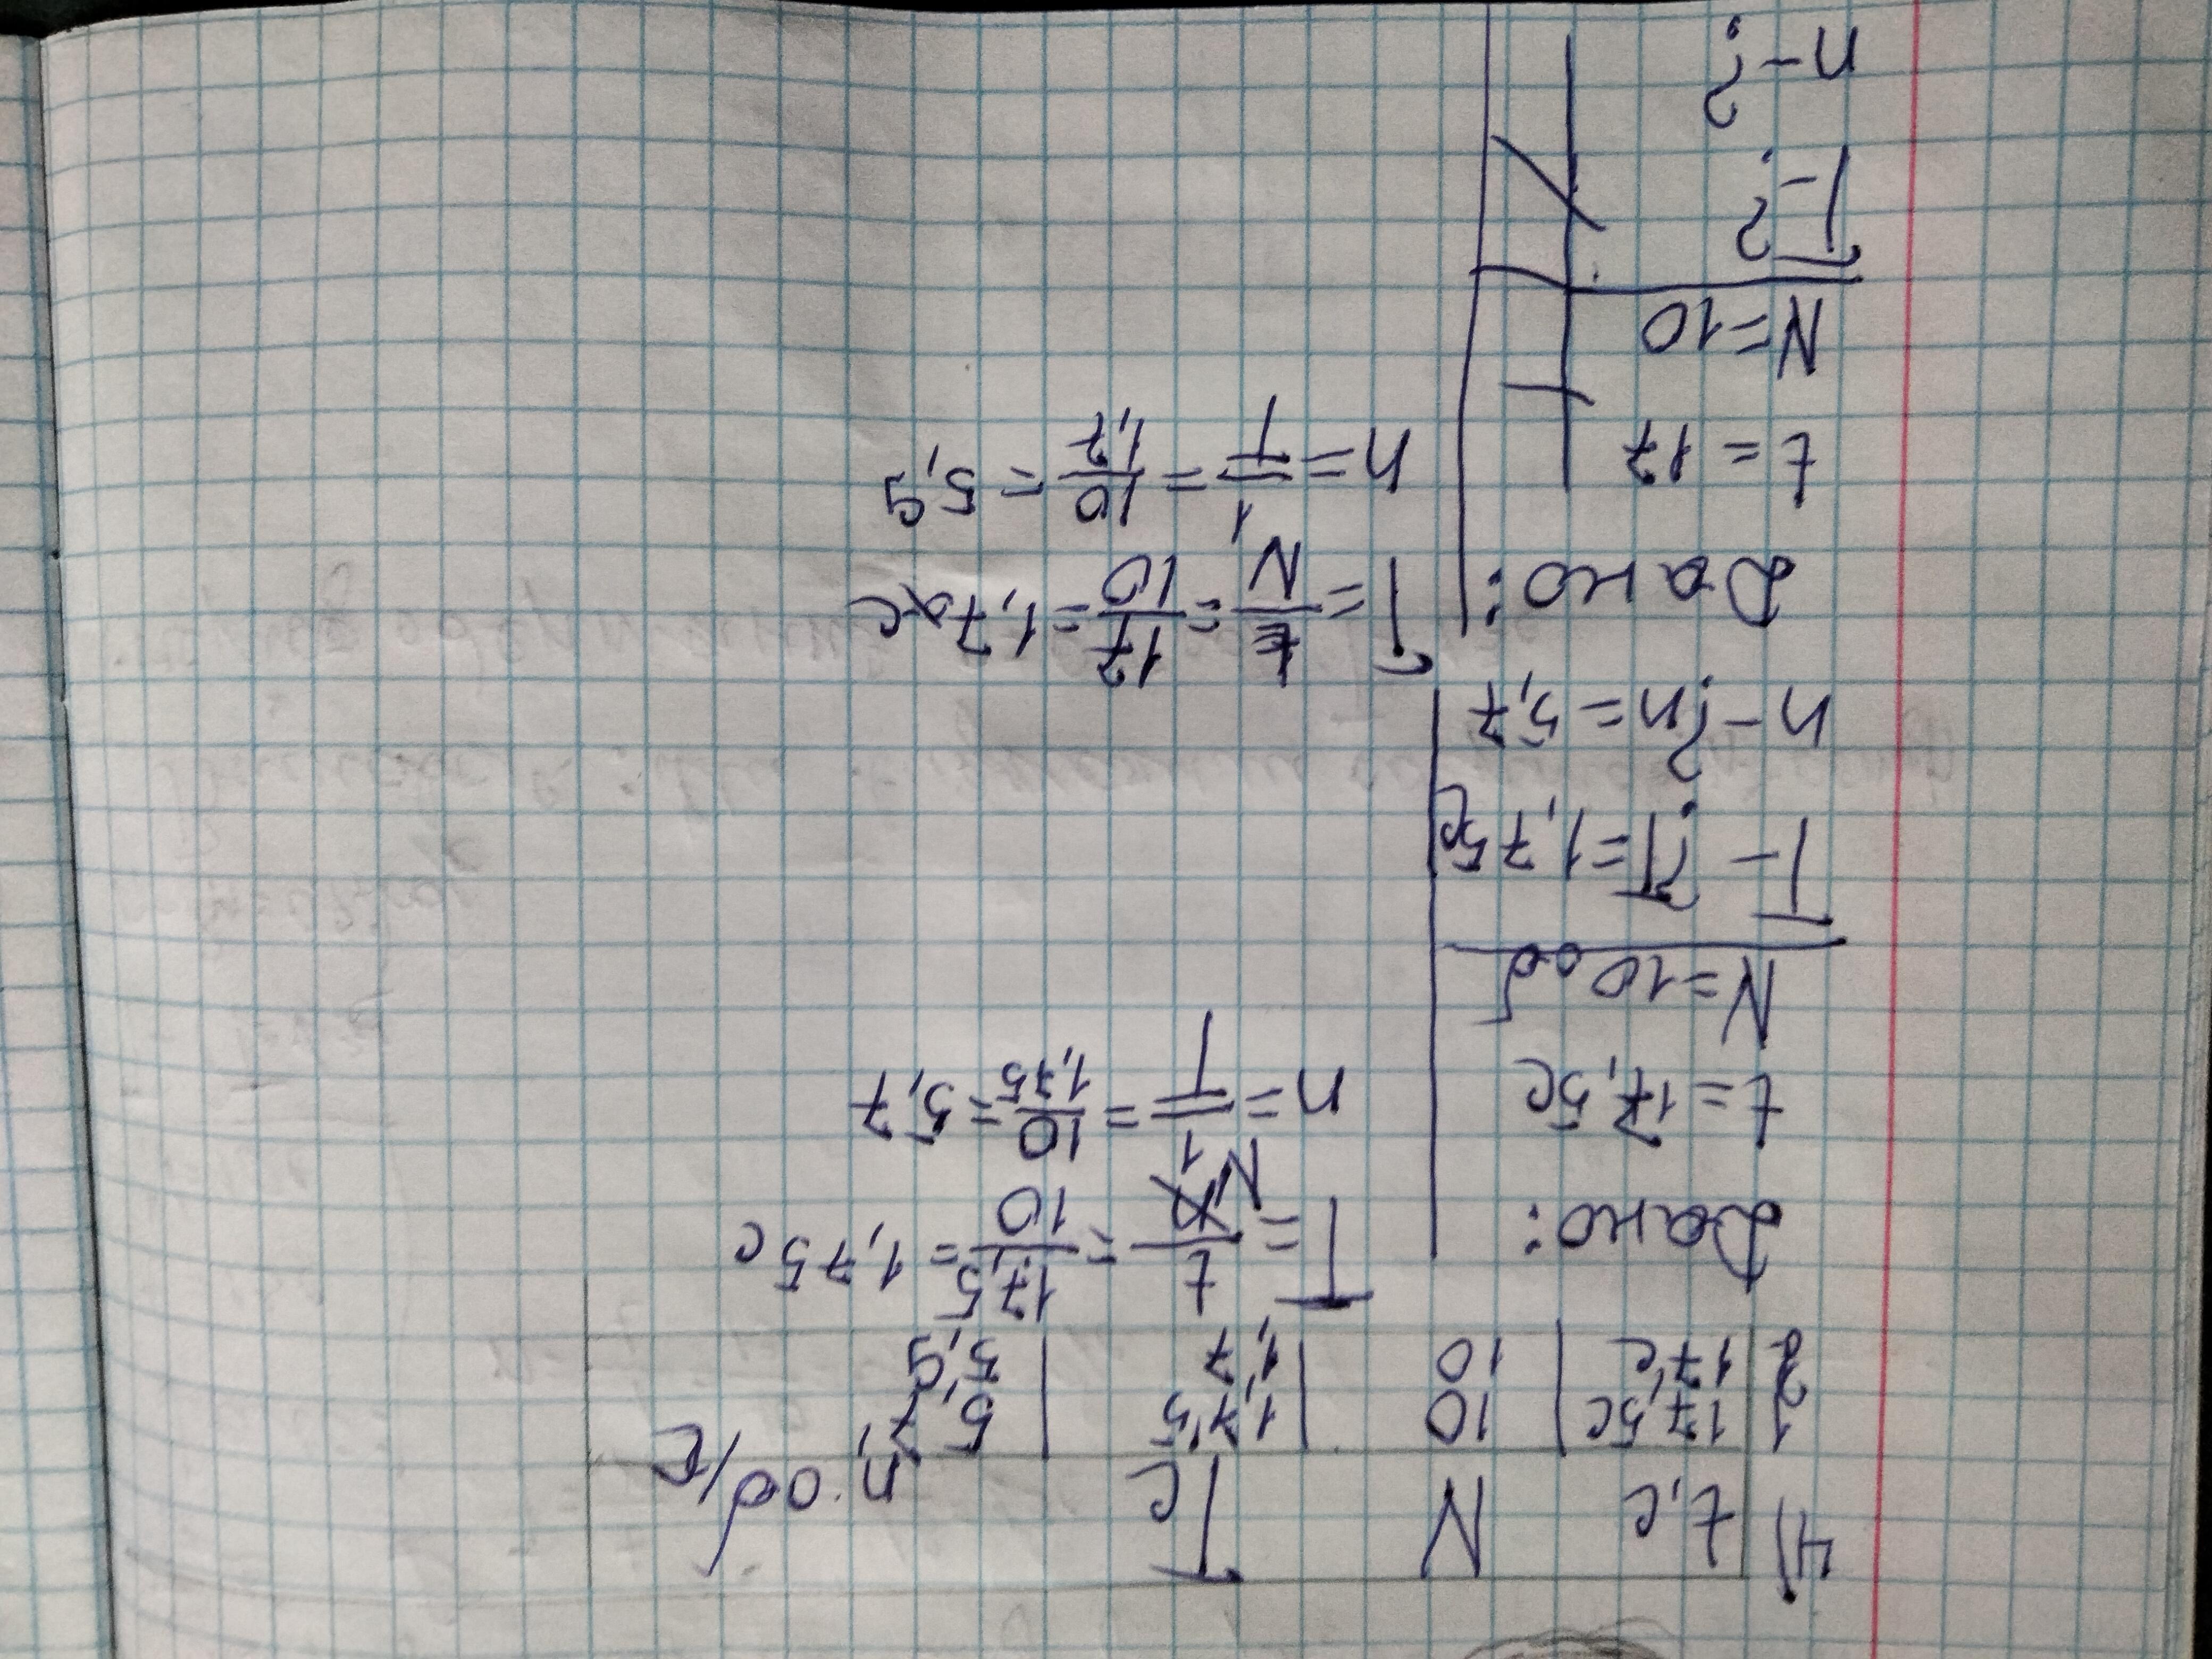 4) t,c N T c n об/с
1 17,5c | 10 | 1,75 | 5,7
2 17c | 10 | 1,7 | 5,9
Дано:
t = 17,5c
N = 10 об
T - ? T = 1,75c
n - ? n = 5,7
T = t/N = 17,5/10 = 1,75 c
n = 1/T = 10/1,75 = 5,7
Дано:
t = 17
N = 10
T - ?
n - ?
T = t/N = 17/10 = 1,7 c
n = 1/T = 10/1,7 = 5,9